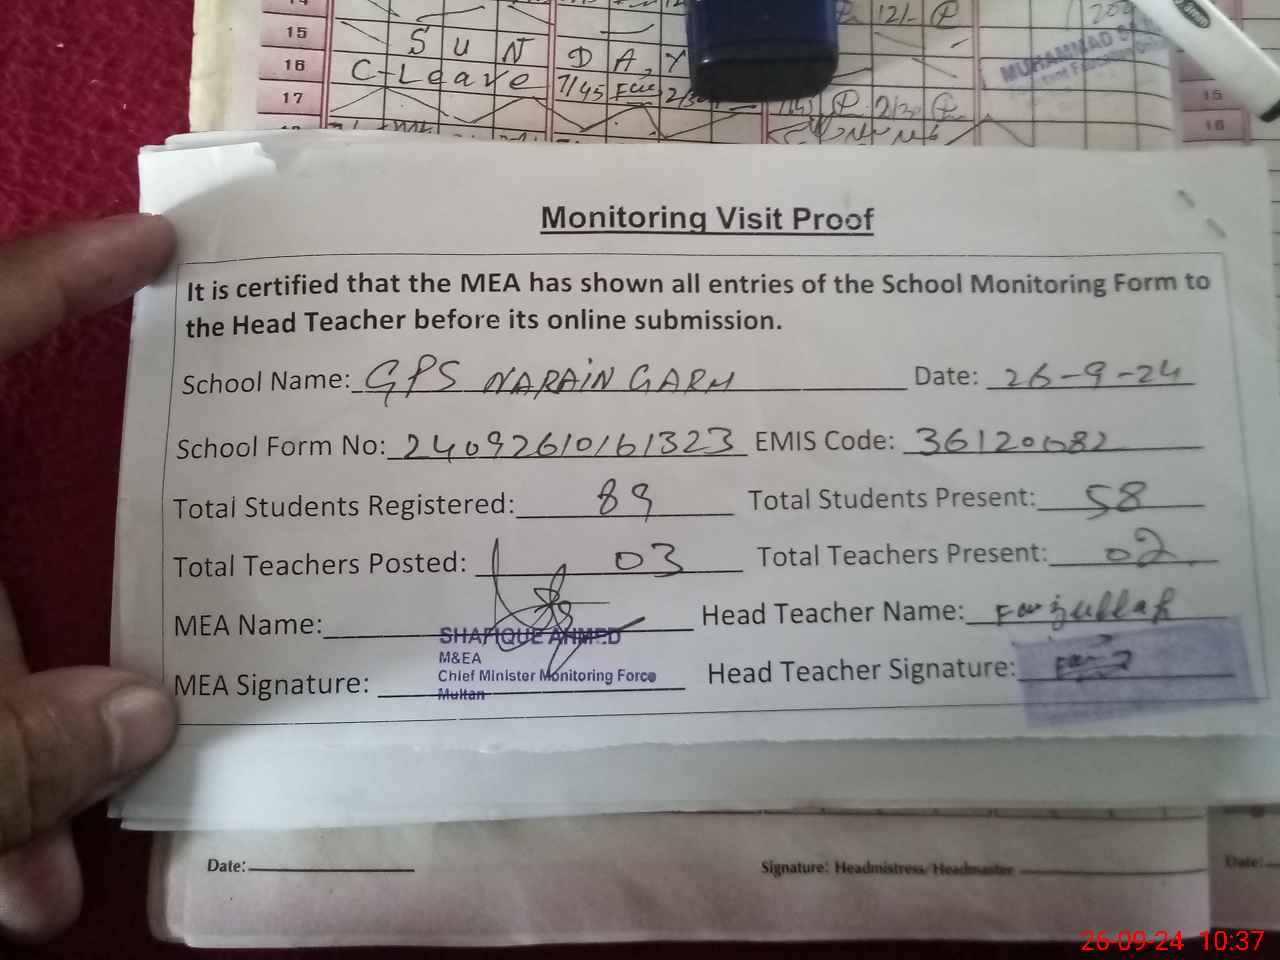 12/- P
15
S U N D A Y
16
C-Leave 7/45
17
2/30
MUHAMMAD
15
16
Monitoring Visit Proof
It is certified that the MEA has shown all entries of the School Monitoring Form to
the Head Teacher before its online submission.
School Name: GPS NARAIN GARH Date: 26-9-24
School Form No: 24092610161323 EMIS Code: 36120682
Total Students Registered: 89 Total Students Present: 58
Total Teachers Posted: 03 Total Teachers Present: 02
MEA Name: Head Teacher Name: Faizullah
SHAFIQUE AHMED
M&EA
Chief Minister Monitoring Force
Multan
MEA Signature: Head Teacher Signature:
Date: Signature: Headmistress/Headmaster Date:
26-09-24 10:37